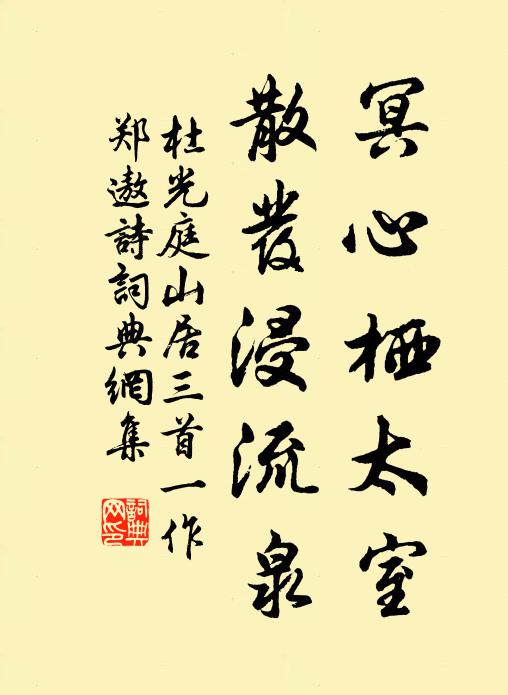 冥心栖太室
散發浸流泉
杜光庭山居三首一作
郑遨詩詞典網集
詞典網印